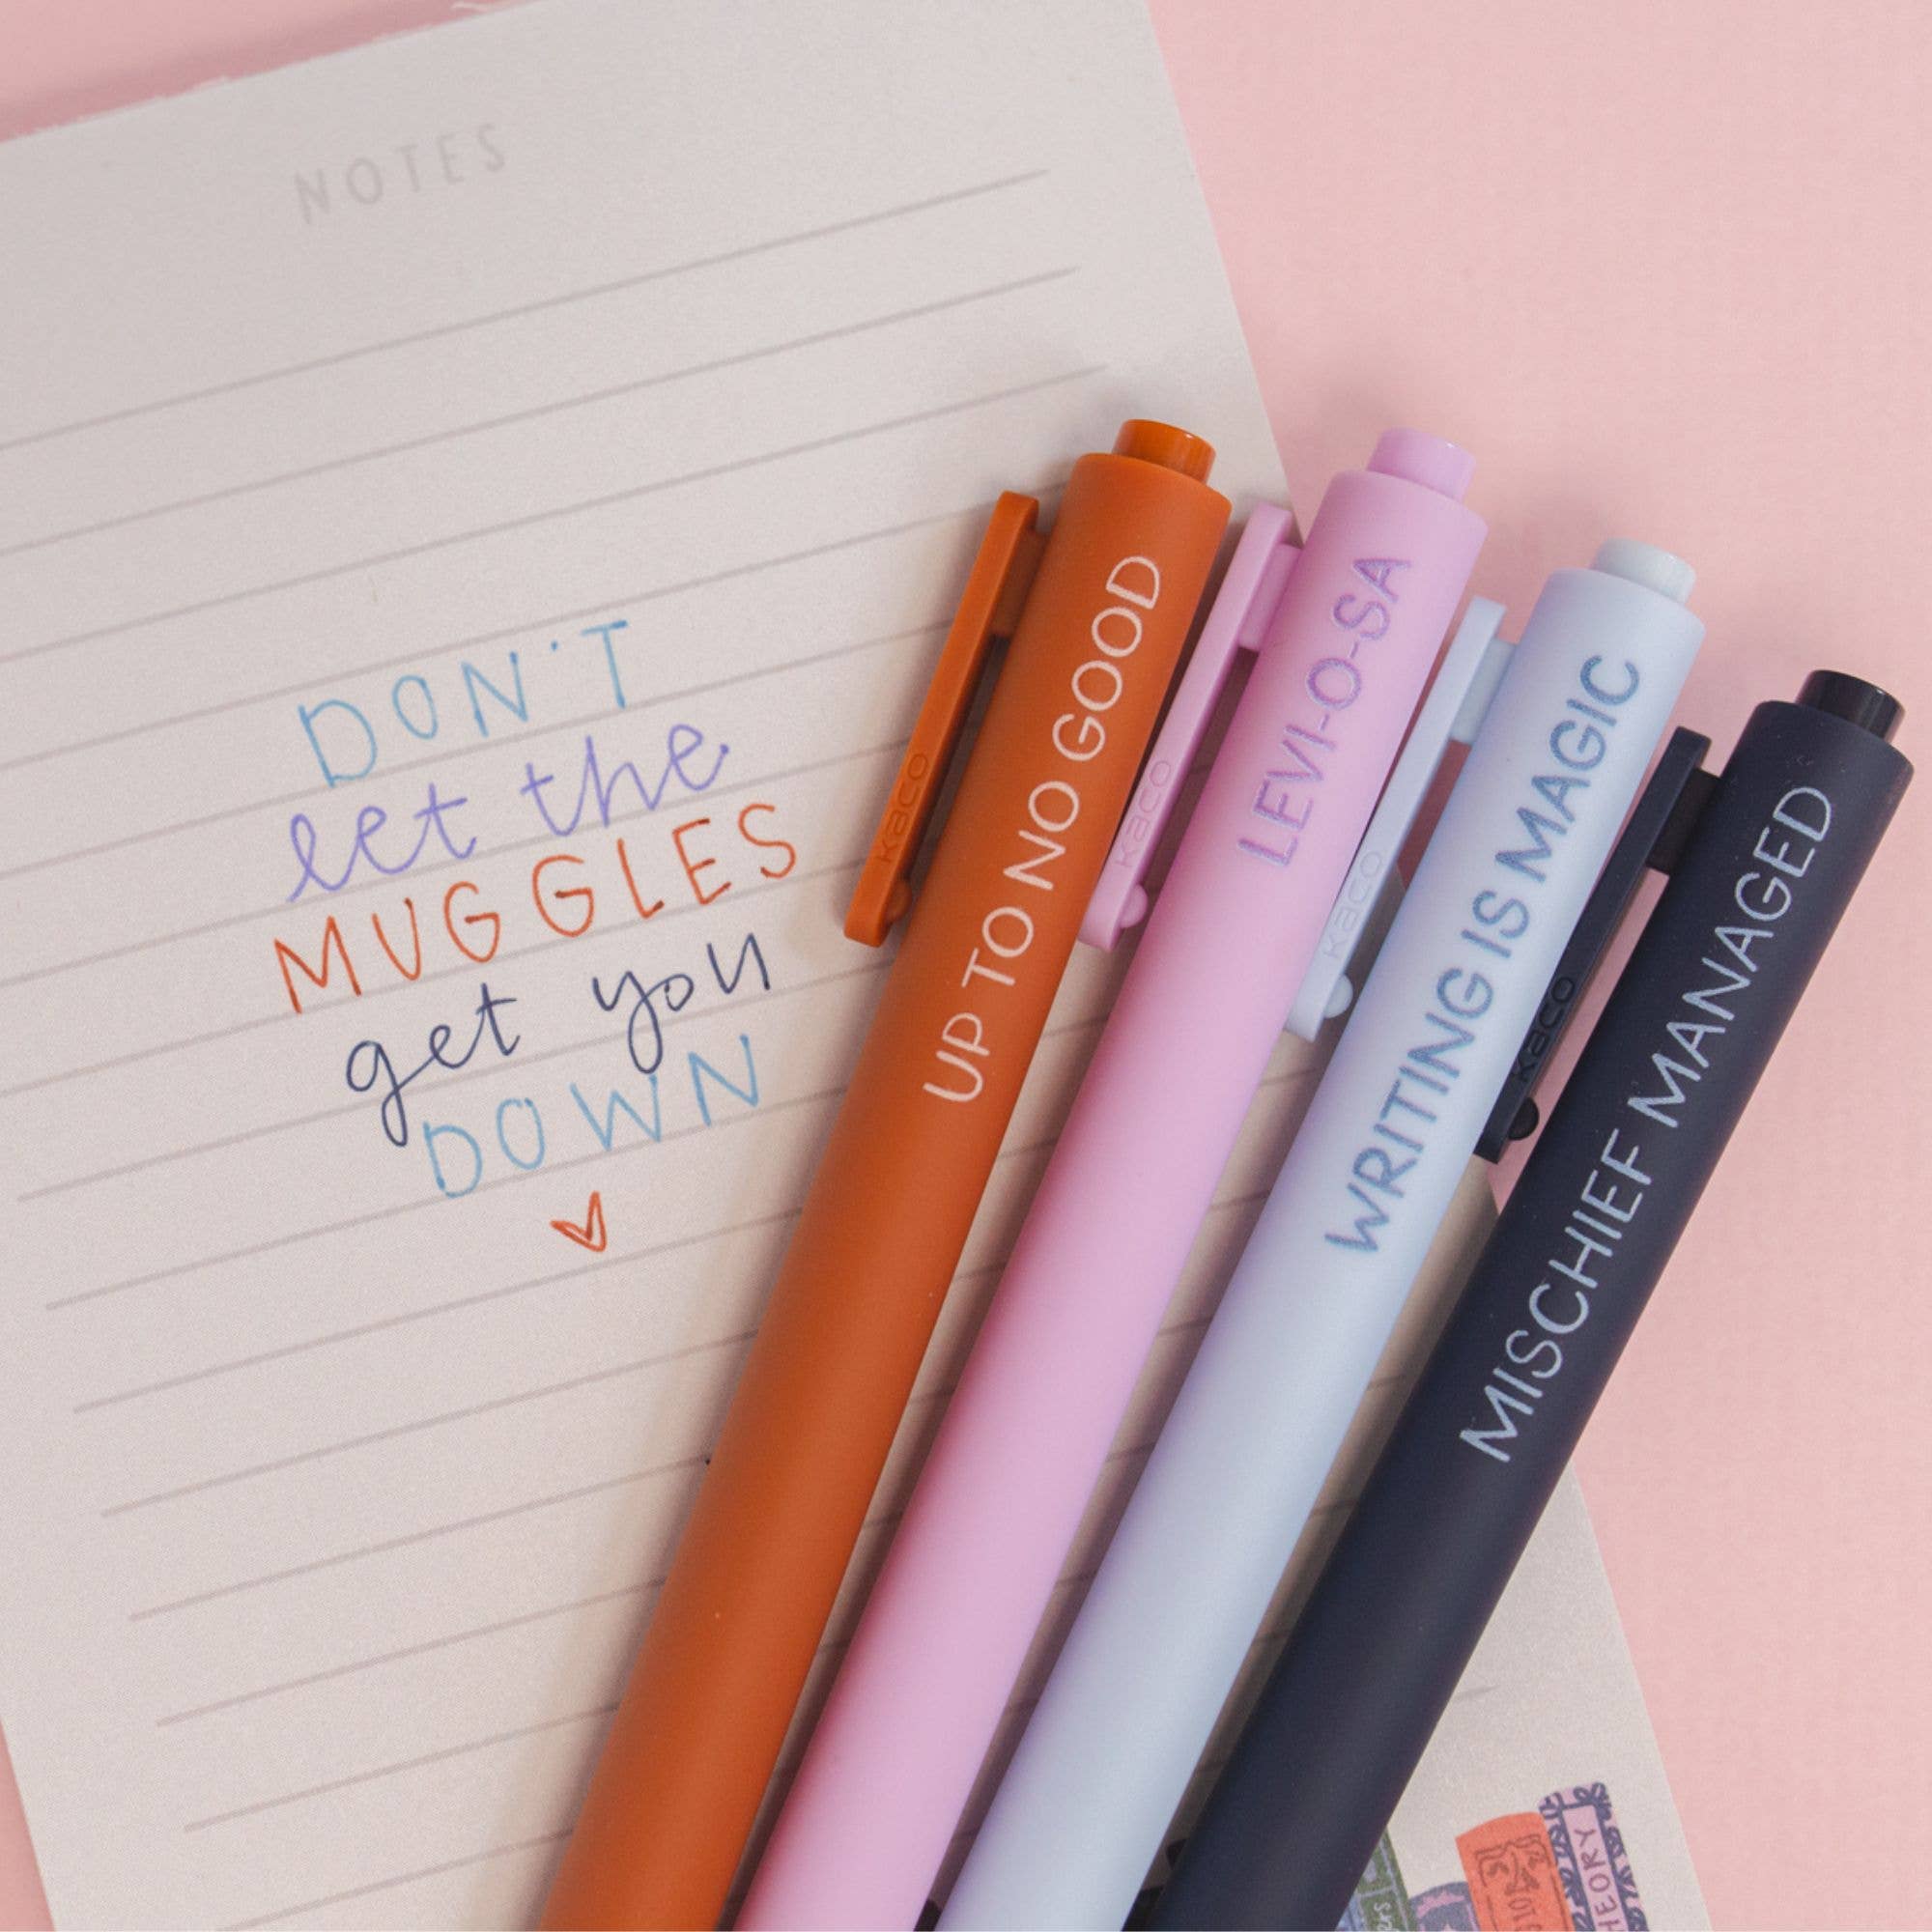 NOTES
DON'T
let the
MUGGLES
get you
DOWN
UP TO NO GOOD
KACO
LEVI-O-SA
KACO
WRITING IS MAGIC
KACO
MISCHIEF MANAGED
KACO